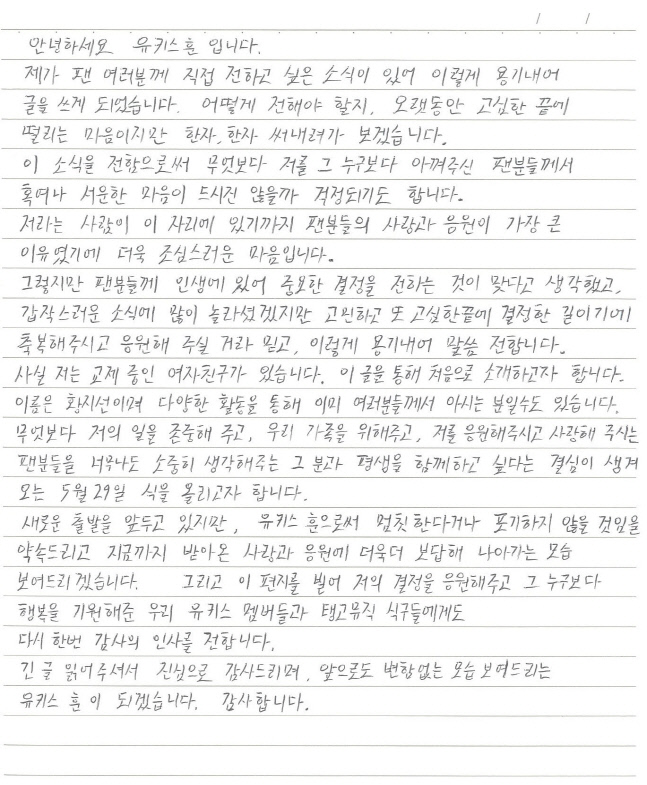 / /
안녕하세요 유키스훈 입니다.
제가 팬 여러분께 직접 전하고 싶은 소식이 있어 이렇게 용기내어
글을 쓰게 되었습니다. 어떻게 전해야 할지, 오랫동안 고심한 끝에
떨리는 마음이지만 한자, 한자 써내려가 보겠습니다.
이 소식을 전함으로써 무엇보다 저를 그 누구보다 아껴주신 팬분들께서
혹여나 서운한 마음이 드시진 않을까 걱정되기도 합니다.
저라는 사람이 이 자리에 있기까지 팬분들의 사랑과 응원이 가장 큰
이유였기에 더욱 조심스러운 마음입니다.
그렇지만 팬분들께 인생에 있어 중요한 결정을 전하는 것이 맞다고 생각했고,
갑작스러운 소식에 많이 놀라셨겠지만 고민하고 또 고심한끝에 결정한 길이기에
축복해주시고 응원해 주실 거라 믿고, 이렇게 용기내어 말씀 전합니다.
사실 저는 교제 중인 여자친구가 있습니다. 이 글을 통해 처음으로 소개하고자 합니다.
이름은 황지선이며 다양한 활동을 통해 이미 여러분들께서 아시는 분일수도 있습니다.
무엇보다 저의 일을 존중해 주고, 우리 가족을 위해주고, 저를 응원해주시고 사랑해 주시는
팬분들을 너무나도 소중히 생각해주는 그 분과 평생을 함께하고 싶다는 결심이 생겨
오는 5월 29일 식을 올리고자 합니다.
새로운 출발을 앞두고 있지만, 유키스 훈으로써 멈칫한다거나 포기하지 않을 것임을
약속드리고 지금까지 받아온 사랑과 응원에 더욱더 보답해 나아가는 모습
보여드리겠습니다. 그리고 이 편지를 빌어 저의 결정을 응원해주고 그 누구보다
행복을 기원해준 우리 유키스 멤버들과 탱고뮤직 식구들에게도
다시 한번 감사의 인사를 전합니다.
긴 글 읽어주셔서 진심으로 감사드리며, 앞으로도 변함없는 모습 보여드리는
유키스 훈 이 되겠습니다. 감사합니다.